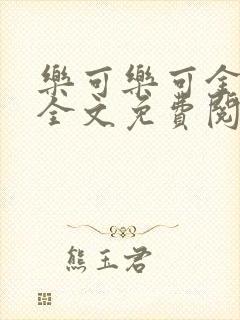 樂可樂可全
全文免費閱
熊玉君